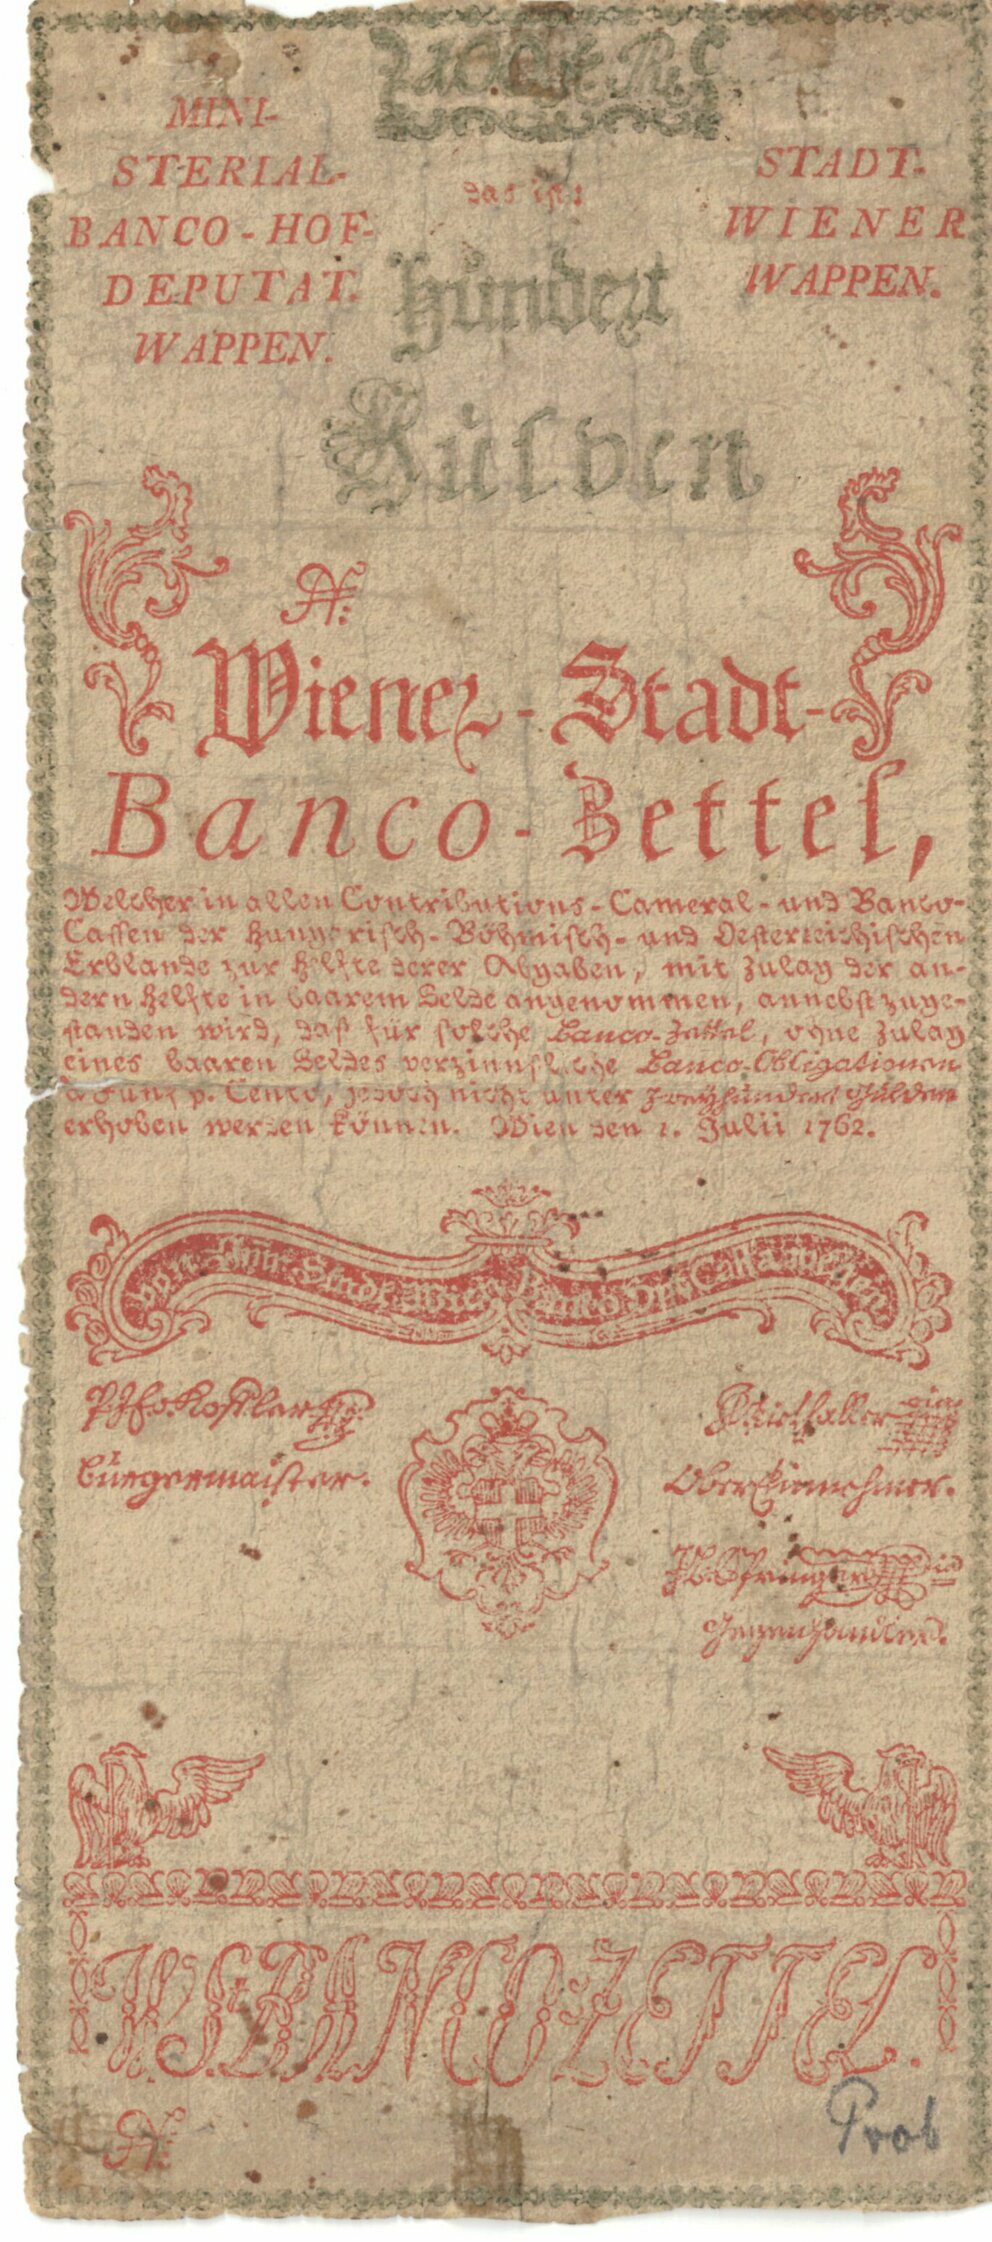 100 f Rh.
MINI-
STERIAL-
BANCO-HOF-
DEPUTAT.
WAPPEN.
STADT-
WIENER
WAPPEN.
das ist:
Hundert
Gulden
N:
Wiener-Stadt-
Banco-Zettel,
Welcher in allen Contributions-Cameral- und Banco-
Cassen der Hungerisch-Böhmisch- und Oesterreichischen
Erblande zur Helfte derer Abgaben, mit Zulag der an-
dern Helfte in baarem Gelde angenommen, annebst zuge-
standen wird, daß für solche Banco-Zettel, ohne Zulag
eines baaren Geldes verzinnsliche Banco-Obligationen
à Funf p. Cento, jedoch nicht unter Zweyhundert Gulden
erhoben werden können. Wien den 1. Julii 1762.
Stadt Wien Banco
Burgermaister.
Ober Einnehmer.
Gegenhandler.
W.S.BANCOZETTEL.
N:
Prob